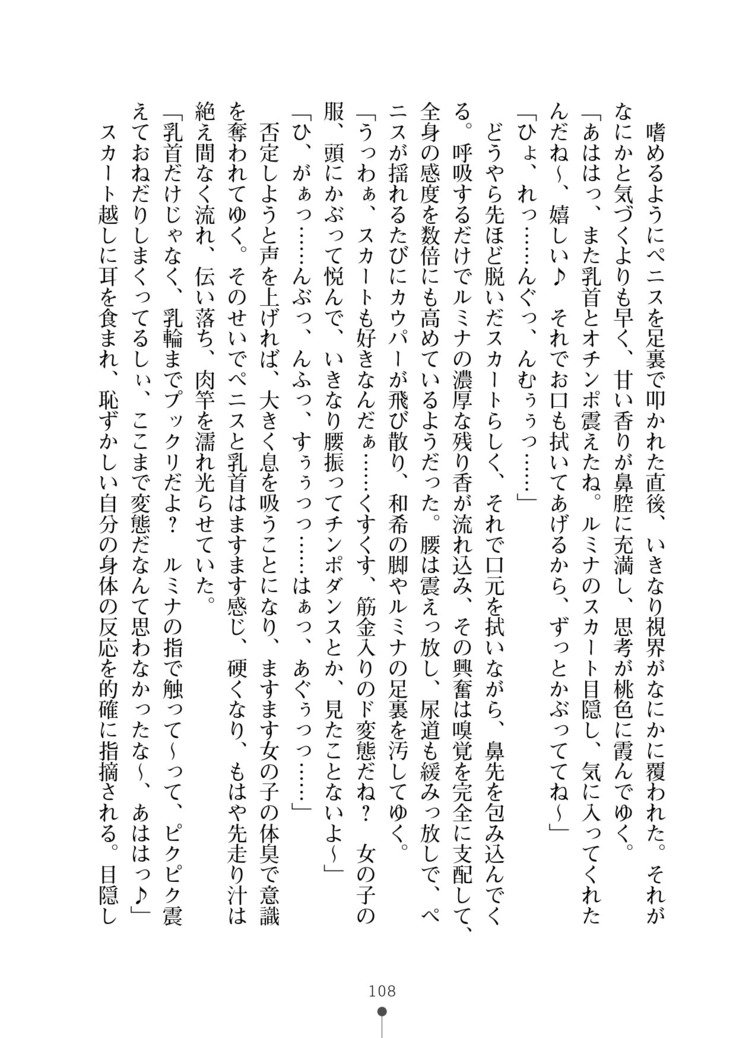 嗜めるようにペニスを足裏で叩かれた直後、いきなり視界がなにかに覆われた。それが
なにかと気づくよりも早く、甘い香りが鼻腔に充満し、思考が桃色に霞んでゆく。
「あははっ、また乳首とオチンポ震えたね。ルミナのスカート目隠し、気に入ってくれた
んだね～、嬉しい♪　それでお口も拭いてあげるから、ずっとかぶっててね～」
「ひょ、れっ……んぐっ、んむぅぅっ……」
どうやら先ほど脱いだスカートらしく、それで口元を拭いながら、鼻先を包み込んでく
る。呼吸するだけでルミナの濃厚な残り香が流れ込み、その興奮は嗅覚を完全に支配して、
全身の感度を数倍にも高めているようだった。腰は震えっ放し、尿道も緩みっ放しで、ペ
ニスが揺れるたびにカウパーが飛び散り、和希の脚やルミナの足裏を汚してゆく。
「うっわぁ、スカートも好きなんだぁ……くすくす、筋金入りのド変態だね？　女の子の
服、頭にかぶって悦んで、いきなり腰振ってチンポダンスとか、見たことないよ～」
「ひ、がぁっ……んぶっ、んふっ、すぅぅっっ……はぁっ、あぐぅっっ……」
否定しようと声を上げれば、大きく息を吸うことになり、ますます女の子の体臭で意識
を奪われてゆく。そのせいでペニスと乳首はますます感じ、硬くなり、もはや先走り汁は
絶え間なく流れ、伝い落ち、肉竿を濡れ光らせていた。
「乳首だけじゃなく、乳輪までプックリだよ？　ルミナの指で触って～って、ピクピク震
えておねだりしまくってるしぃ、ここまで変態だなんて思わなかったな～、あははっ♪」
スカート越しに耳を食まれ、恥ずかしい自分の身体の反応を的確に指摘される。目隠し
108